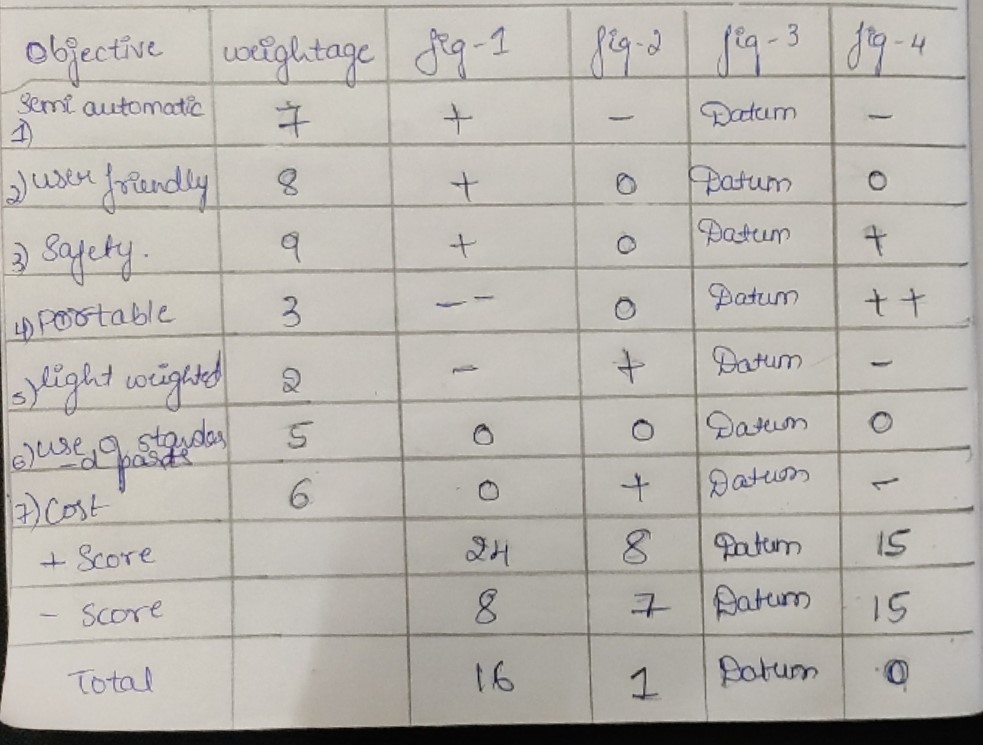 Objective weightage fig-1 fig-2 fig-3 fig-4
Semi automatic
1) 7 + - Datum -
2) user friendly 8 + 0 Datum 0
3) Safety. 9 + 0 Datum +
4) Portable 3 -- 0 Datum ++
5) light weighted 2 - + Datum -
6) use of standar 5 0 0 Datum 0
-d parts
7) Cost 6 0 + Datum -
+ Score 24 8 Datum 15
- Score 8 7 Datum 15
Total 16 1 Datum 0